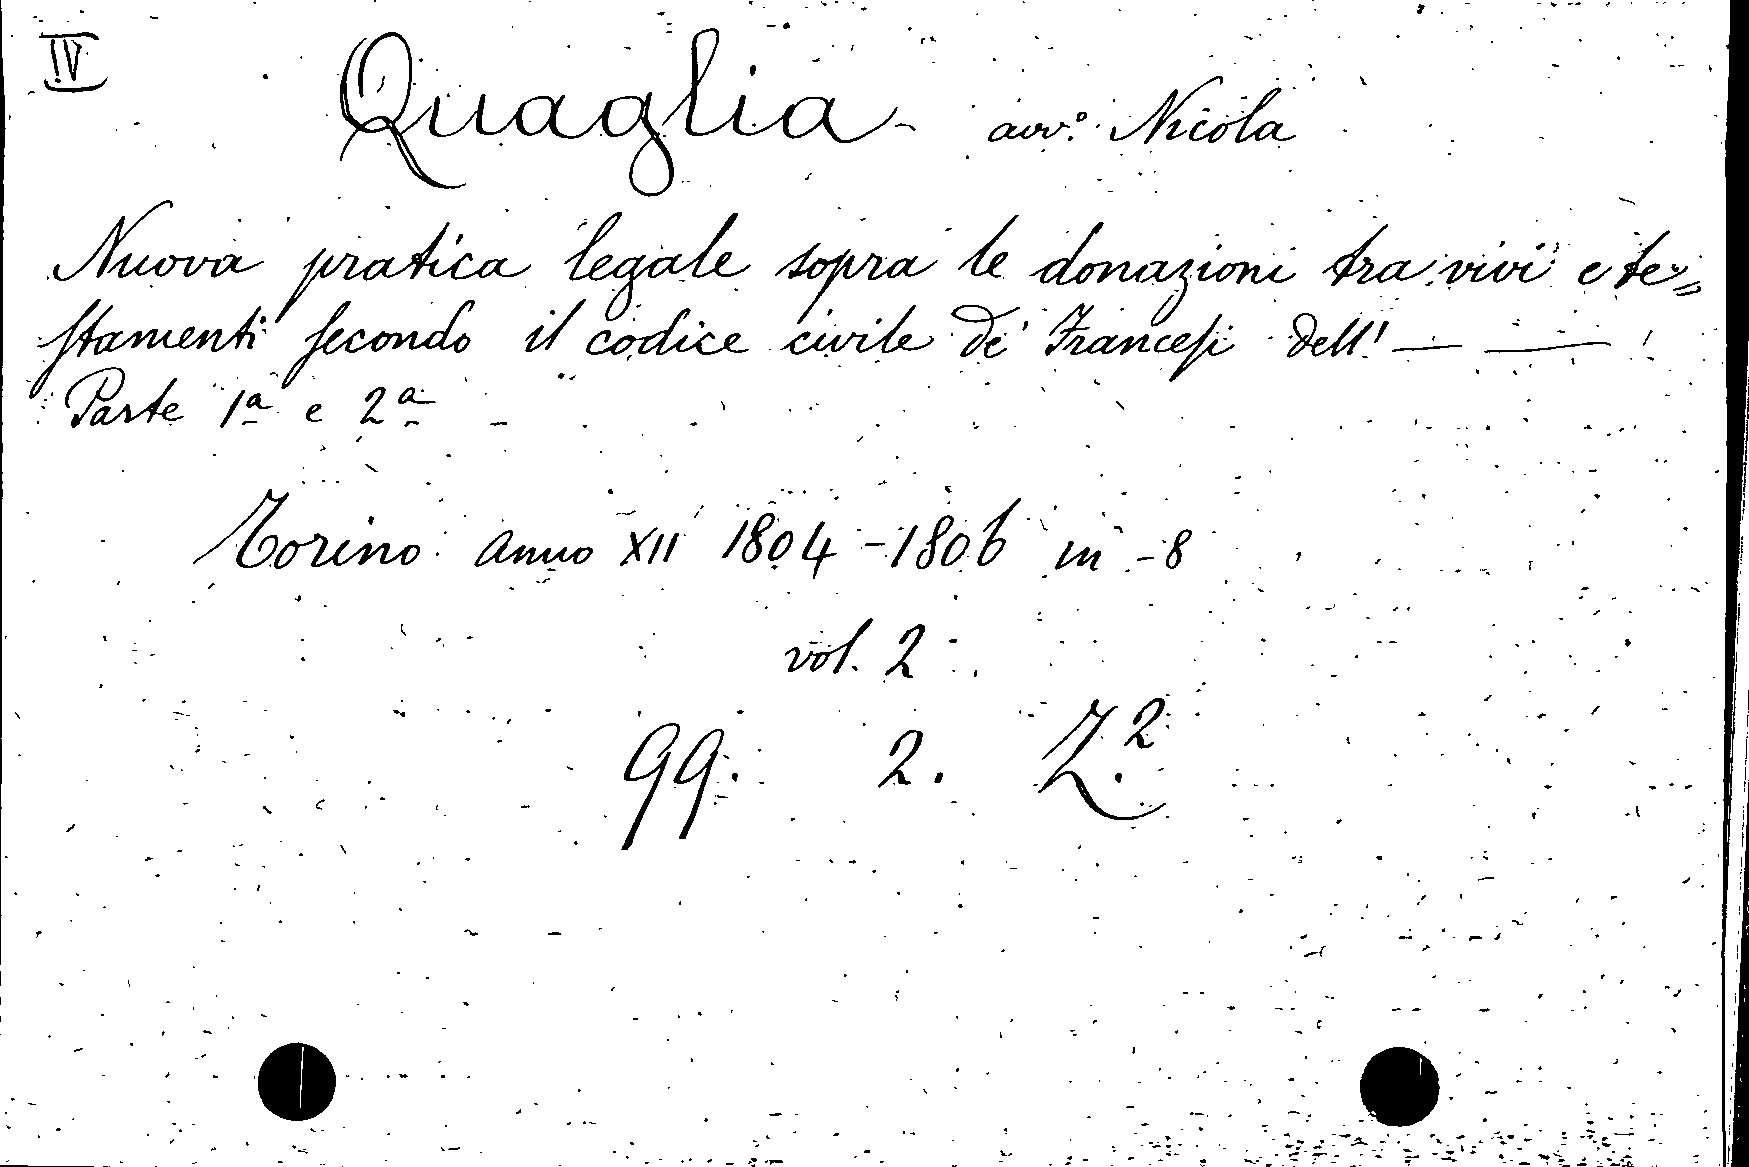 IV
Quaglia - avv.º Nicola
Nuova pratica legale sopra le donazioni tra vivi e te=
stamenti secondo il codice civile de' Francesi dell' — —
Parte 1ª e 2ª
Torino anno XII 1804-1806 in-8
vol. 2
99. 2. Z.²